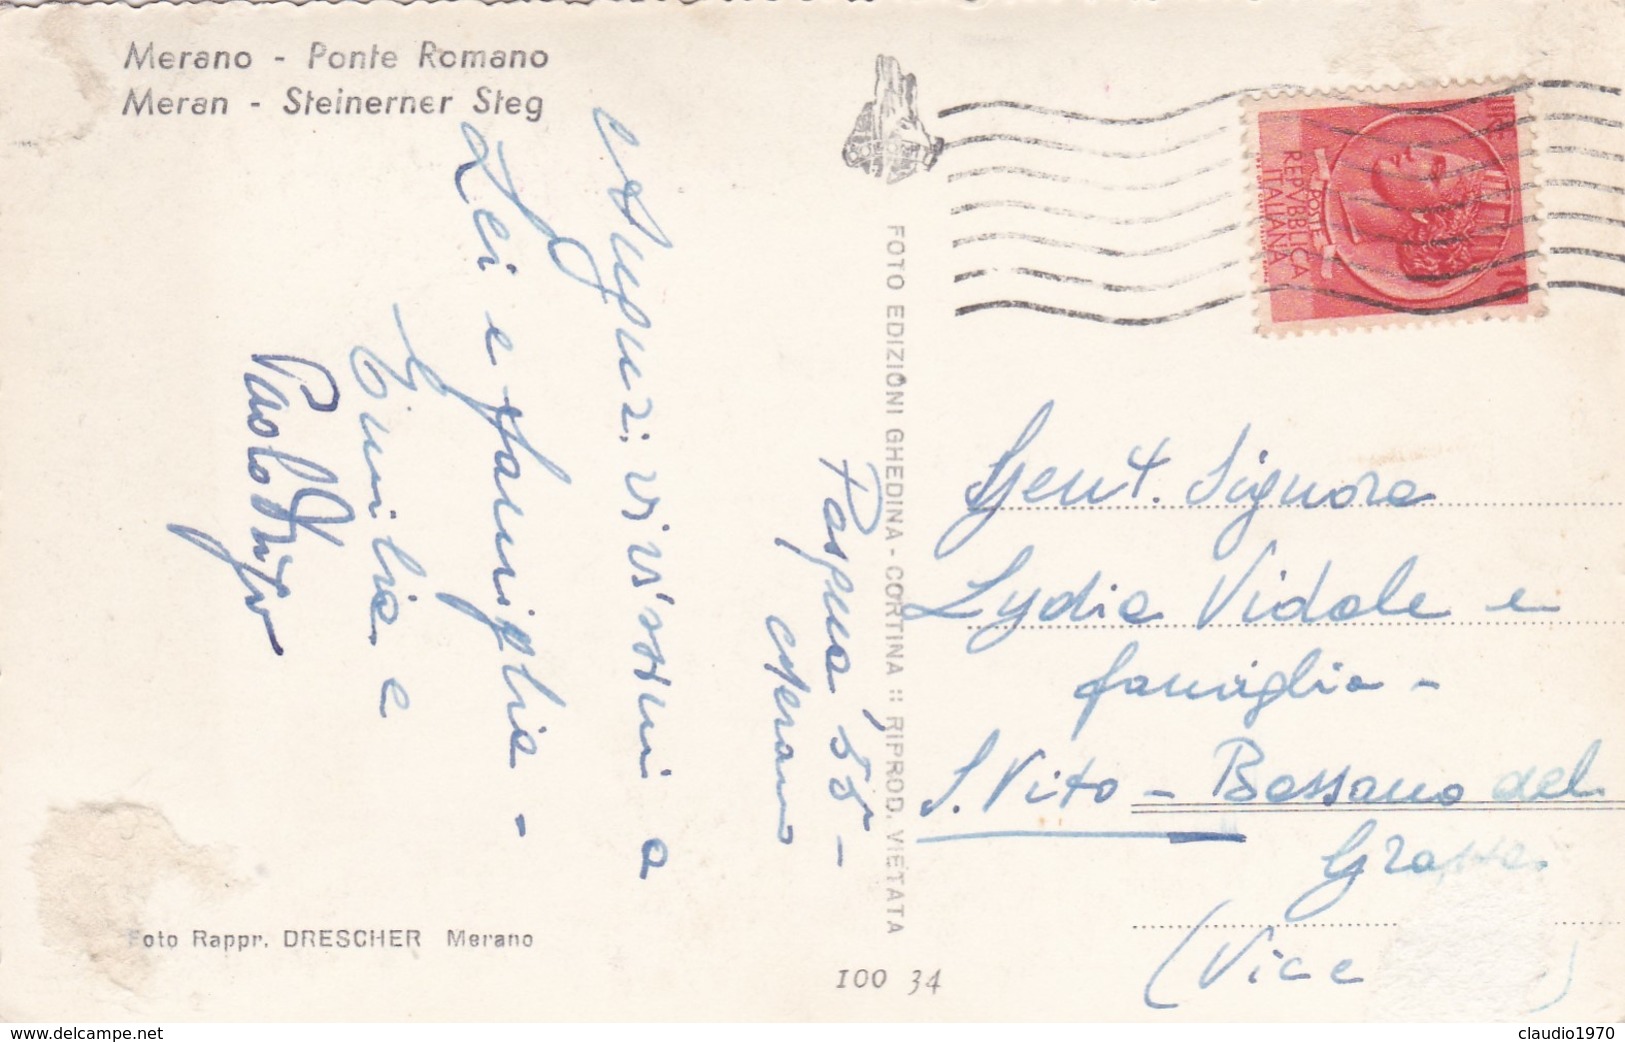 Merano - Ponte Romano
Meran - Steinerner Steg
Pasqua 55 -
Merano
Auguri vivissimi a
Lei e famiglia -
Emilia e
Paolo
FOTO EDIZIONI GHEDINA - CORTINA :: RIPROD. VIETATA
POSTE
REPVBBLICA
ITALIANA
LIRE
10
Gent. Signora
Lydia Vidale e
famiglia -
S. Vito - Bassano del
Grappa
(Vice
Foto Rappr. DRESCHER Merano
100 34
www.delcampe.net
claudio1970